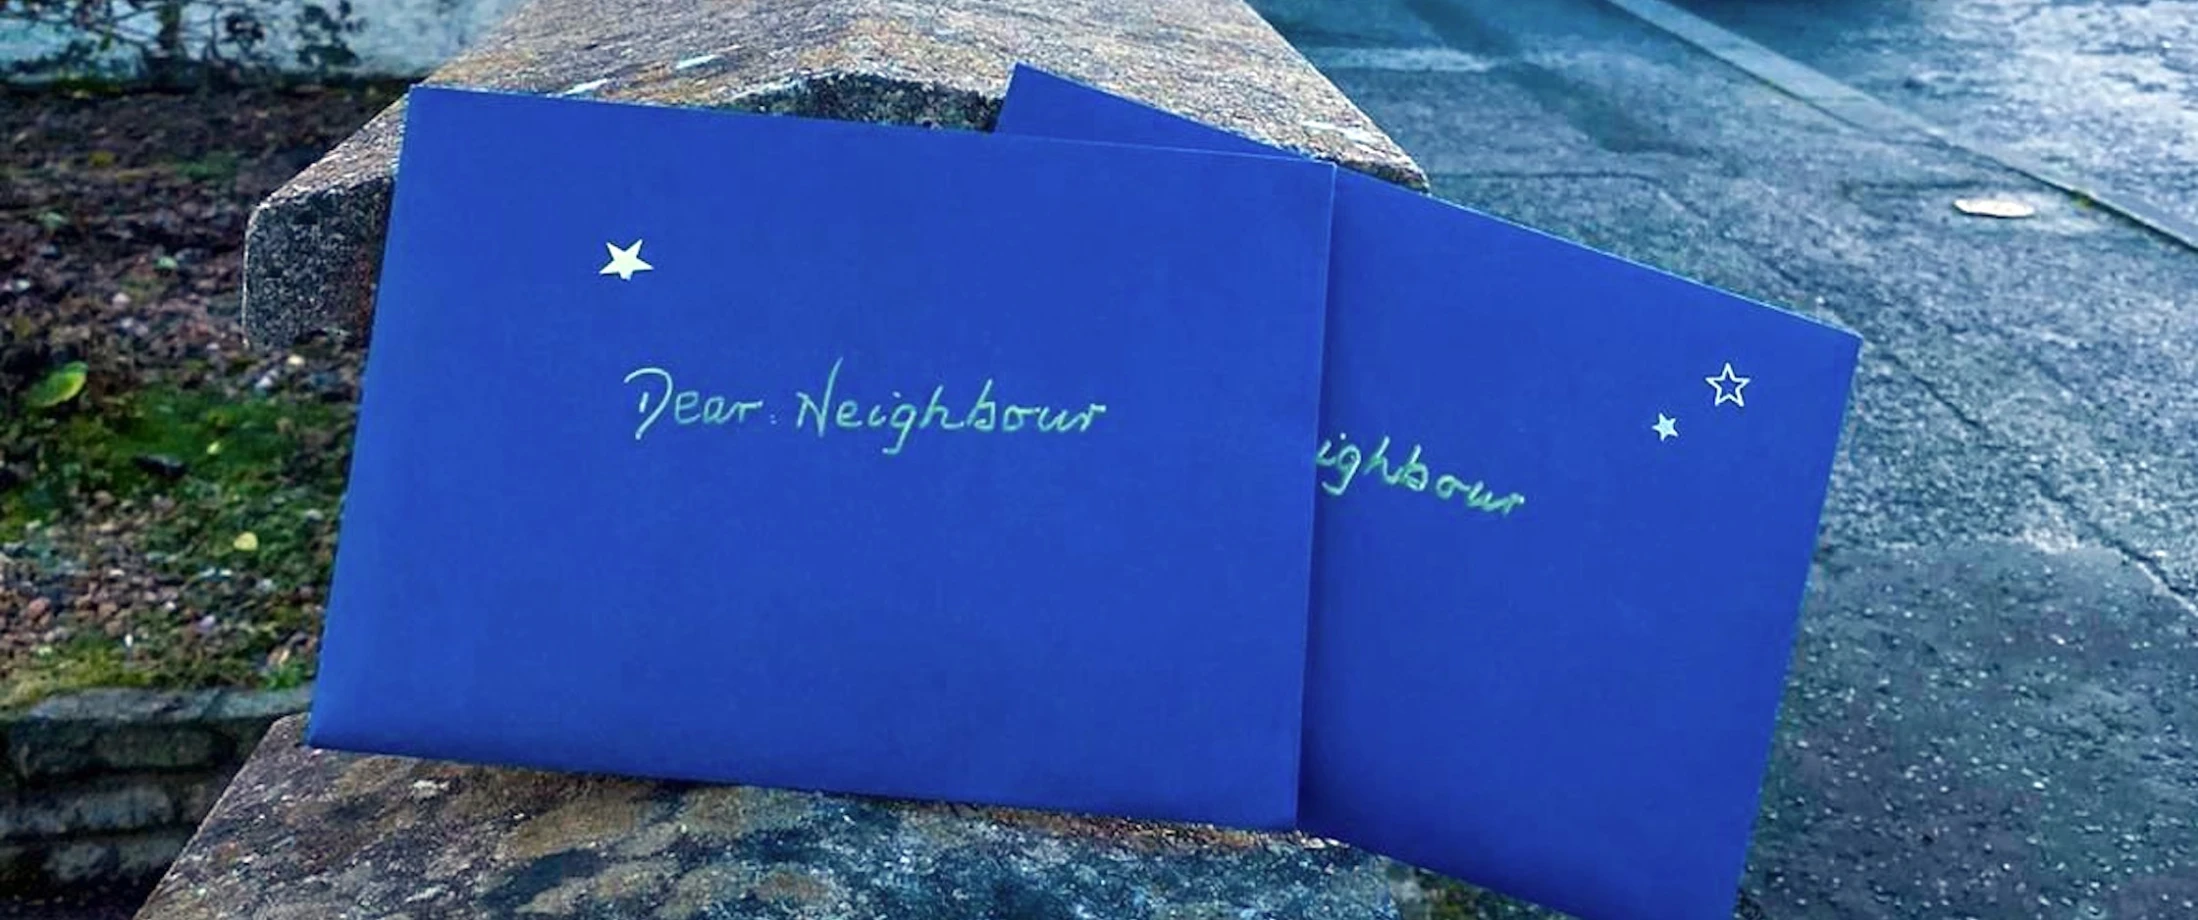 Dear Neighbour
ighbour